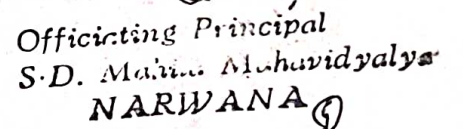 Officiating Principal
S.D. Mahavidyalya
NARWANA